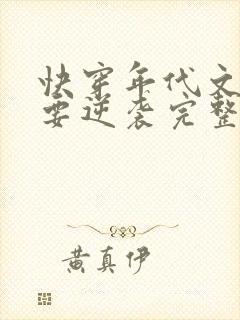 快穿年代文
要逆袭完整
黄真伊